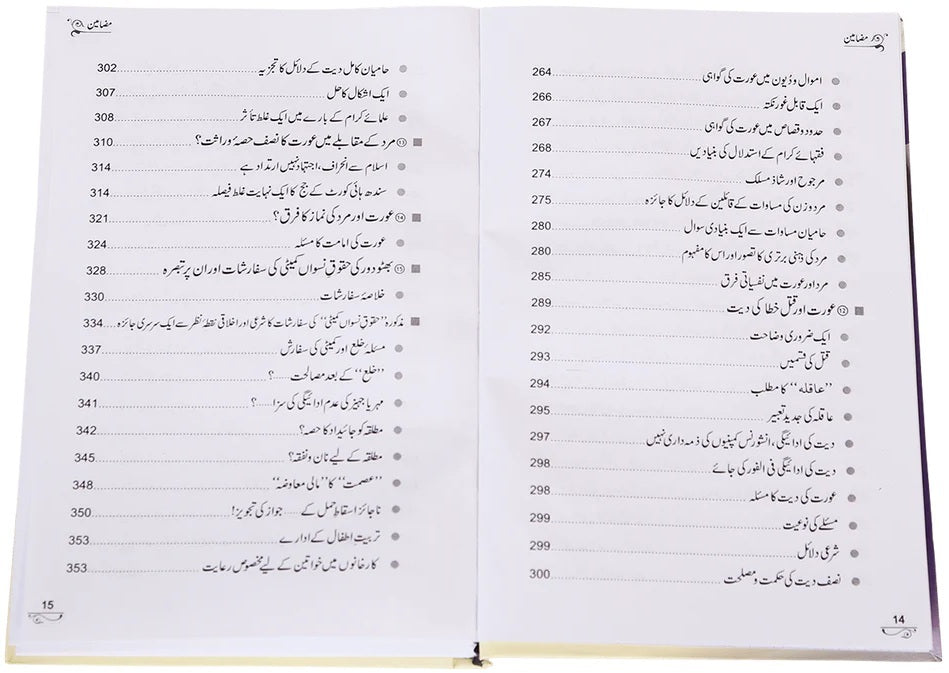 مضامین
اموال و دُیون میں عورت کی گواہی 264
ایک قابلِ غور نکتہ 266
حدود و قصاص میں عورت کی گواہی 267
فقہائے کرام کے استدلال کی بنیادیں 268
مرجوح اور شاذ مسلک 274
مرد و زن کی مساوات کے قائلین کے دلائل کا جائزہ 275
حامیانِ مساوات سے ایک بنیادی سوال 280
مرد کی ذہنی برتری کا تصور اور اس کا مفہوم 280
مرد اور عورت میں نفسیاتی فرق 285
⑫ عورت اور قتلِ خطا کی دیت 289
ایک ضروری وضاحت 292
قتل کی قسمیں 293
”عاقلہ“ کا مطلب 294
عاقلہ کی جدید تعبیر 295
دیت کی ادائیگی، انشورنس کمپنیوں کی ذمہ داری نہیں 297
دیت کی ادائیگی فی الفور کی جائے 298
عورت کی دیت کا مسئلہ 298
مسئلے کی نوعیت 299
شرعی دلائل 299
نصف دیت کی حکمت و مصلحت 300
14
مضامین
حامیان کامل دیت کے دلائل کا تجزیہ 302
ایک اشکال کا حل 307
علمائے کرام کے بارے میں ایک غلط تأثر 308
⑬ مرد کے مقابلے میں عورت کا نصف حصۂ وراثت؟ 310
اسلام سے انحراف، اجتہاد نہیں ارتداد ہے 314
سندھ ہائی کورٹ کے جج کا ایک نہایت غلط فیصلہ 314
⑭ عورت اور مرد کی نماز کا فرق؟ 321
عورت کی امامت کا مسئلہ 324
⑮ بھٹو دور کی حقوقِ نسواں کمیٹی کی سفارشات اور ان پر تبصرہ 328
خلاصۂ سفارشات 330
مذکورہ ”حقوقِ نسواں کمیٹی“ کی سفارشات کا شرعی اور اخلاقی نقطۂ نظر سے ایک سرسری جائزہ 334
مسئلۂ خلع اور کمیٹی کی سفارش 337
”خلع“ کے بعد مصالحت ......؟ 340
مہر یا جہیز کی عدم ادائیگی کی سزا ......؟ 341
مطلقہ کو جائیداد کا حصہ؟ 342
مطلقہ کے لیے نان و نفقہ؟ 345
”عصمت“ کا ”مالی معاوضہ“ 348
ناجائز اسقاطِ حمل کے ...... جواز کی تجویز! 350
تربیتِ اطفال کے ادارے 353
کارخانوں میں خواتین کے لیے مخصوص رعایت 353
15